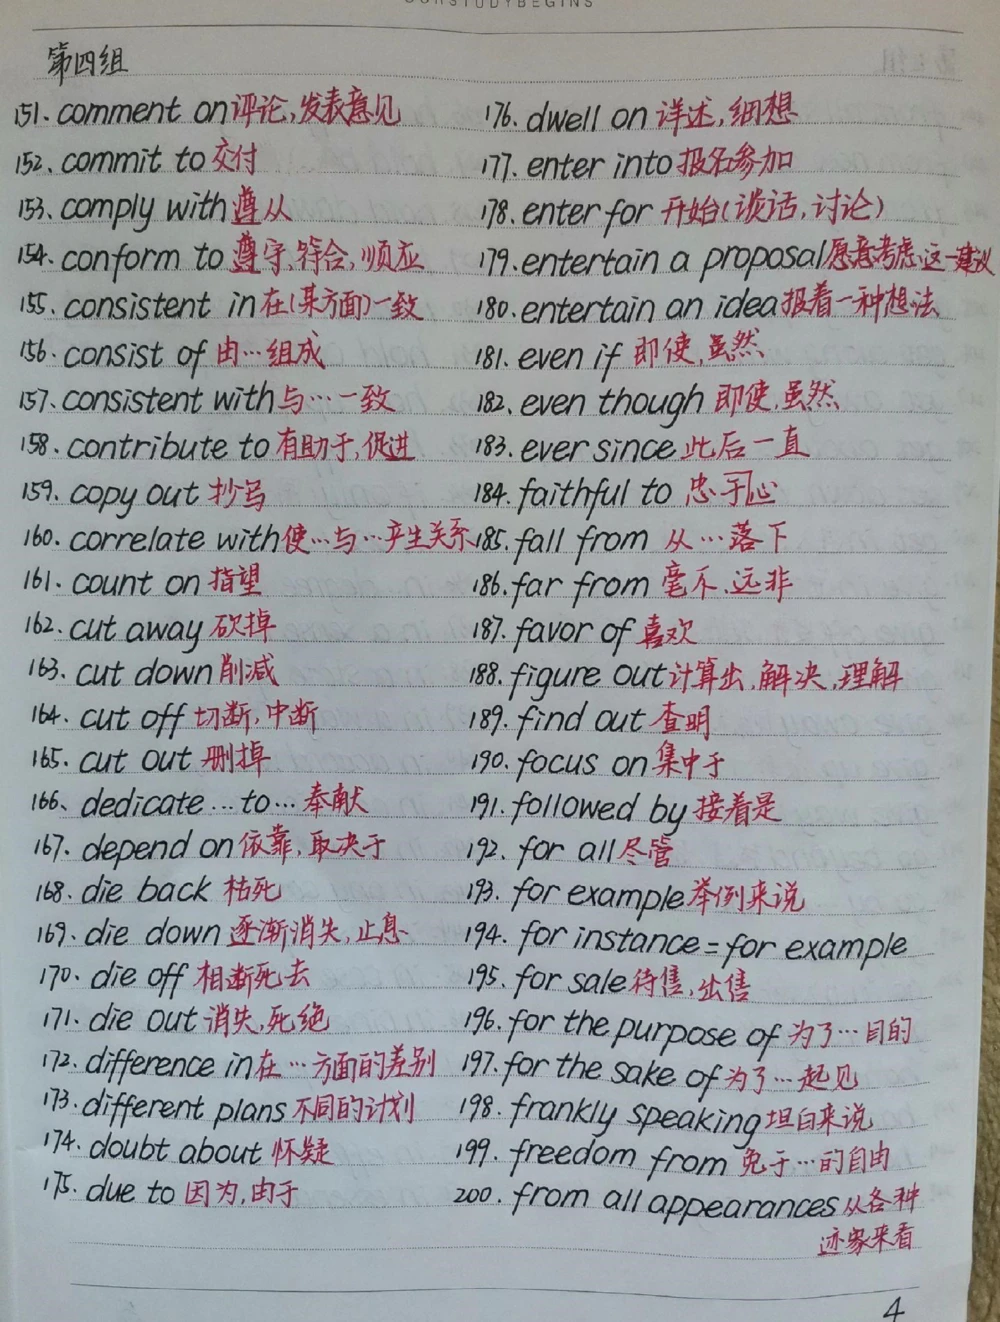 OURSTUDYBEGINS
第四组
151. comment on 评论,发表意见
152. commit to 交付
153. comply with 遵从
154. conform to 遵守,符合,顺应
155. consistent in 在(某方面)一致
156. consist of 由…组成
157. consistent with 与…一致
158. contribute to 有助于,促进
159. copy out 抄写
160. correlate with 使…与…产生关系
161. count on 指望
162. cut away 砍掉
163. cut down 削减
164. cut off 切断,中断
165. cut out 删掉
166、dedicate…to… 奉献
167. depend on 依靠,取决于
168. die back 枯死
169. die down 逐渐消失,止息
170. die off 相断死去
171. die out 消失,死绝
172. difference in 在…方面的差别
173. different plans 不同的计划
174. doubt about 怀疑
175. due to 因为,由于
176. dwell on 详述,细想
177. enter into 报名参加
178. enter for 开始(谈话,讨论)
179. entertain a proposal 愿意考虑这一建议
180. entertain an idea 报着一种想法
181. even if 即使,虽然
182. even though 即使,虽然
183. ever since 此后一直
184. faithful to 忠于
185. fall from 从…落下
186. far from 毫不、远非
187. favor of 喜欢
188. figure out 计算出,解决,理解
189. find out 查明
190. focus on 集中于
191. followed by 接着是
192. for all 尽管
193. for example 举例来说
194. for instance = for example
195. for sale 待售,出售
196. for the purpose of 为了…目的
197. for the sake of 为了…起见
198. frankly speaking 坦白来说
199. freedom from 免于…的自由
200. from all appearances 从各种
迹象来看
4